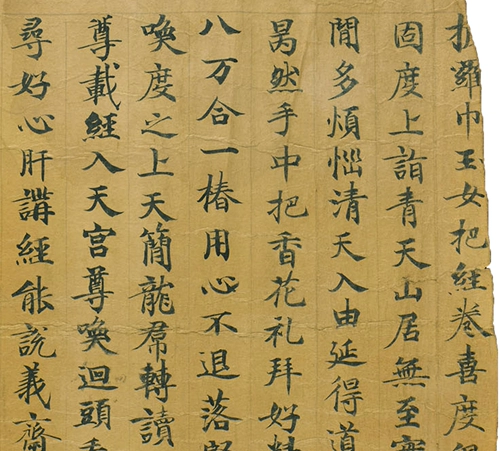 羅巾玉女把經卷喜度
固度上詣青天山居無至
閒多煩惱清天入由延得道
然手中把香花礼拜好
八万合一椿用心不退落
喚度之上天簡龍轉讀
尊載經入天宮尊喚迴頭
尋好心肝講經能說義齋